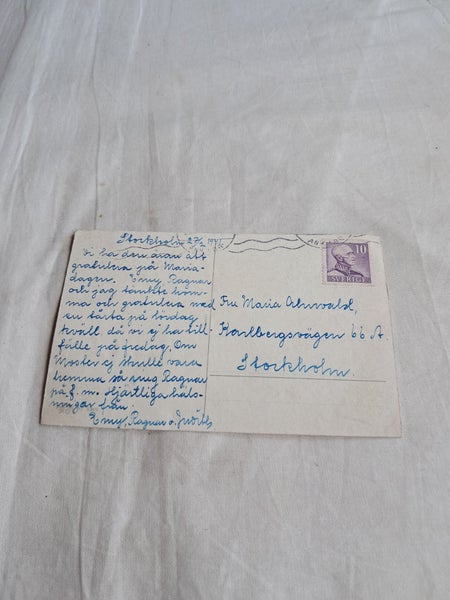 Stockholm 27/2 1941
Vi ha den äran att
gratulera på Maria-
dagen. Emy, Ragnar
och jag tänkte kom-
ma och gratulera med
en tårta på lördag
kväll då vi ej ha till-
fälle på fredag. Om
Moster ej skulle vara
hemma så ring Ragnar
på f.m. Hjärtliga häls-
ningar från
Emy, Ragnar o. Judith
10
SVERIGE
Fru Maria Ahrvald,
Karlbergsvägen 66 A.
Stockholm.